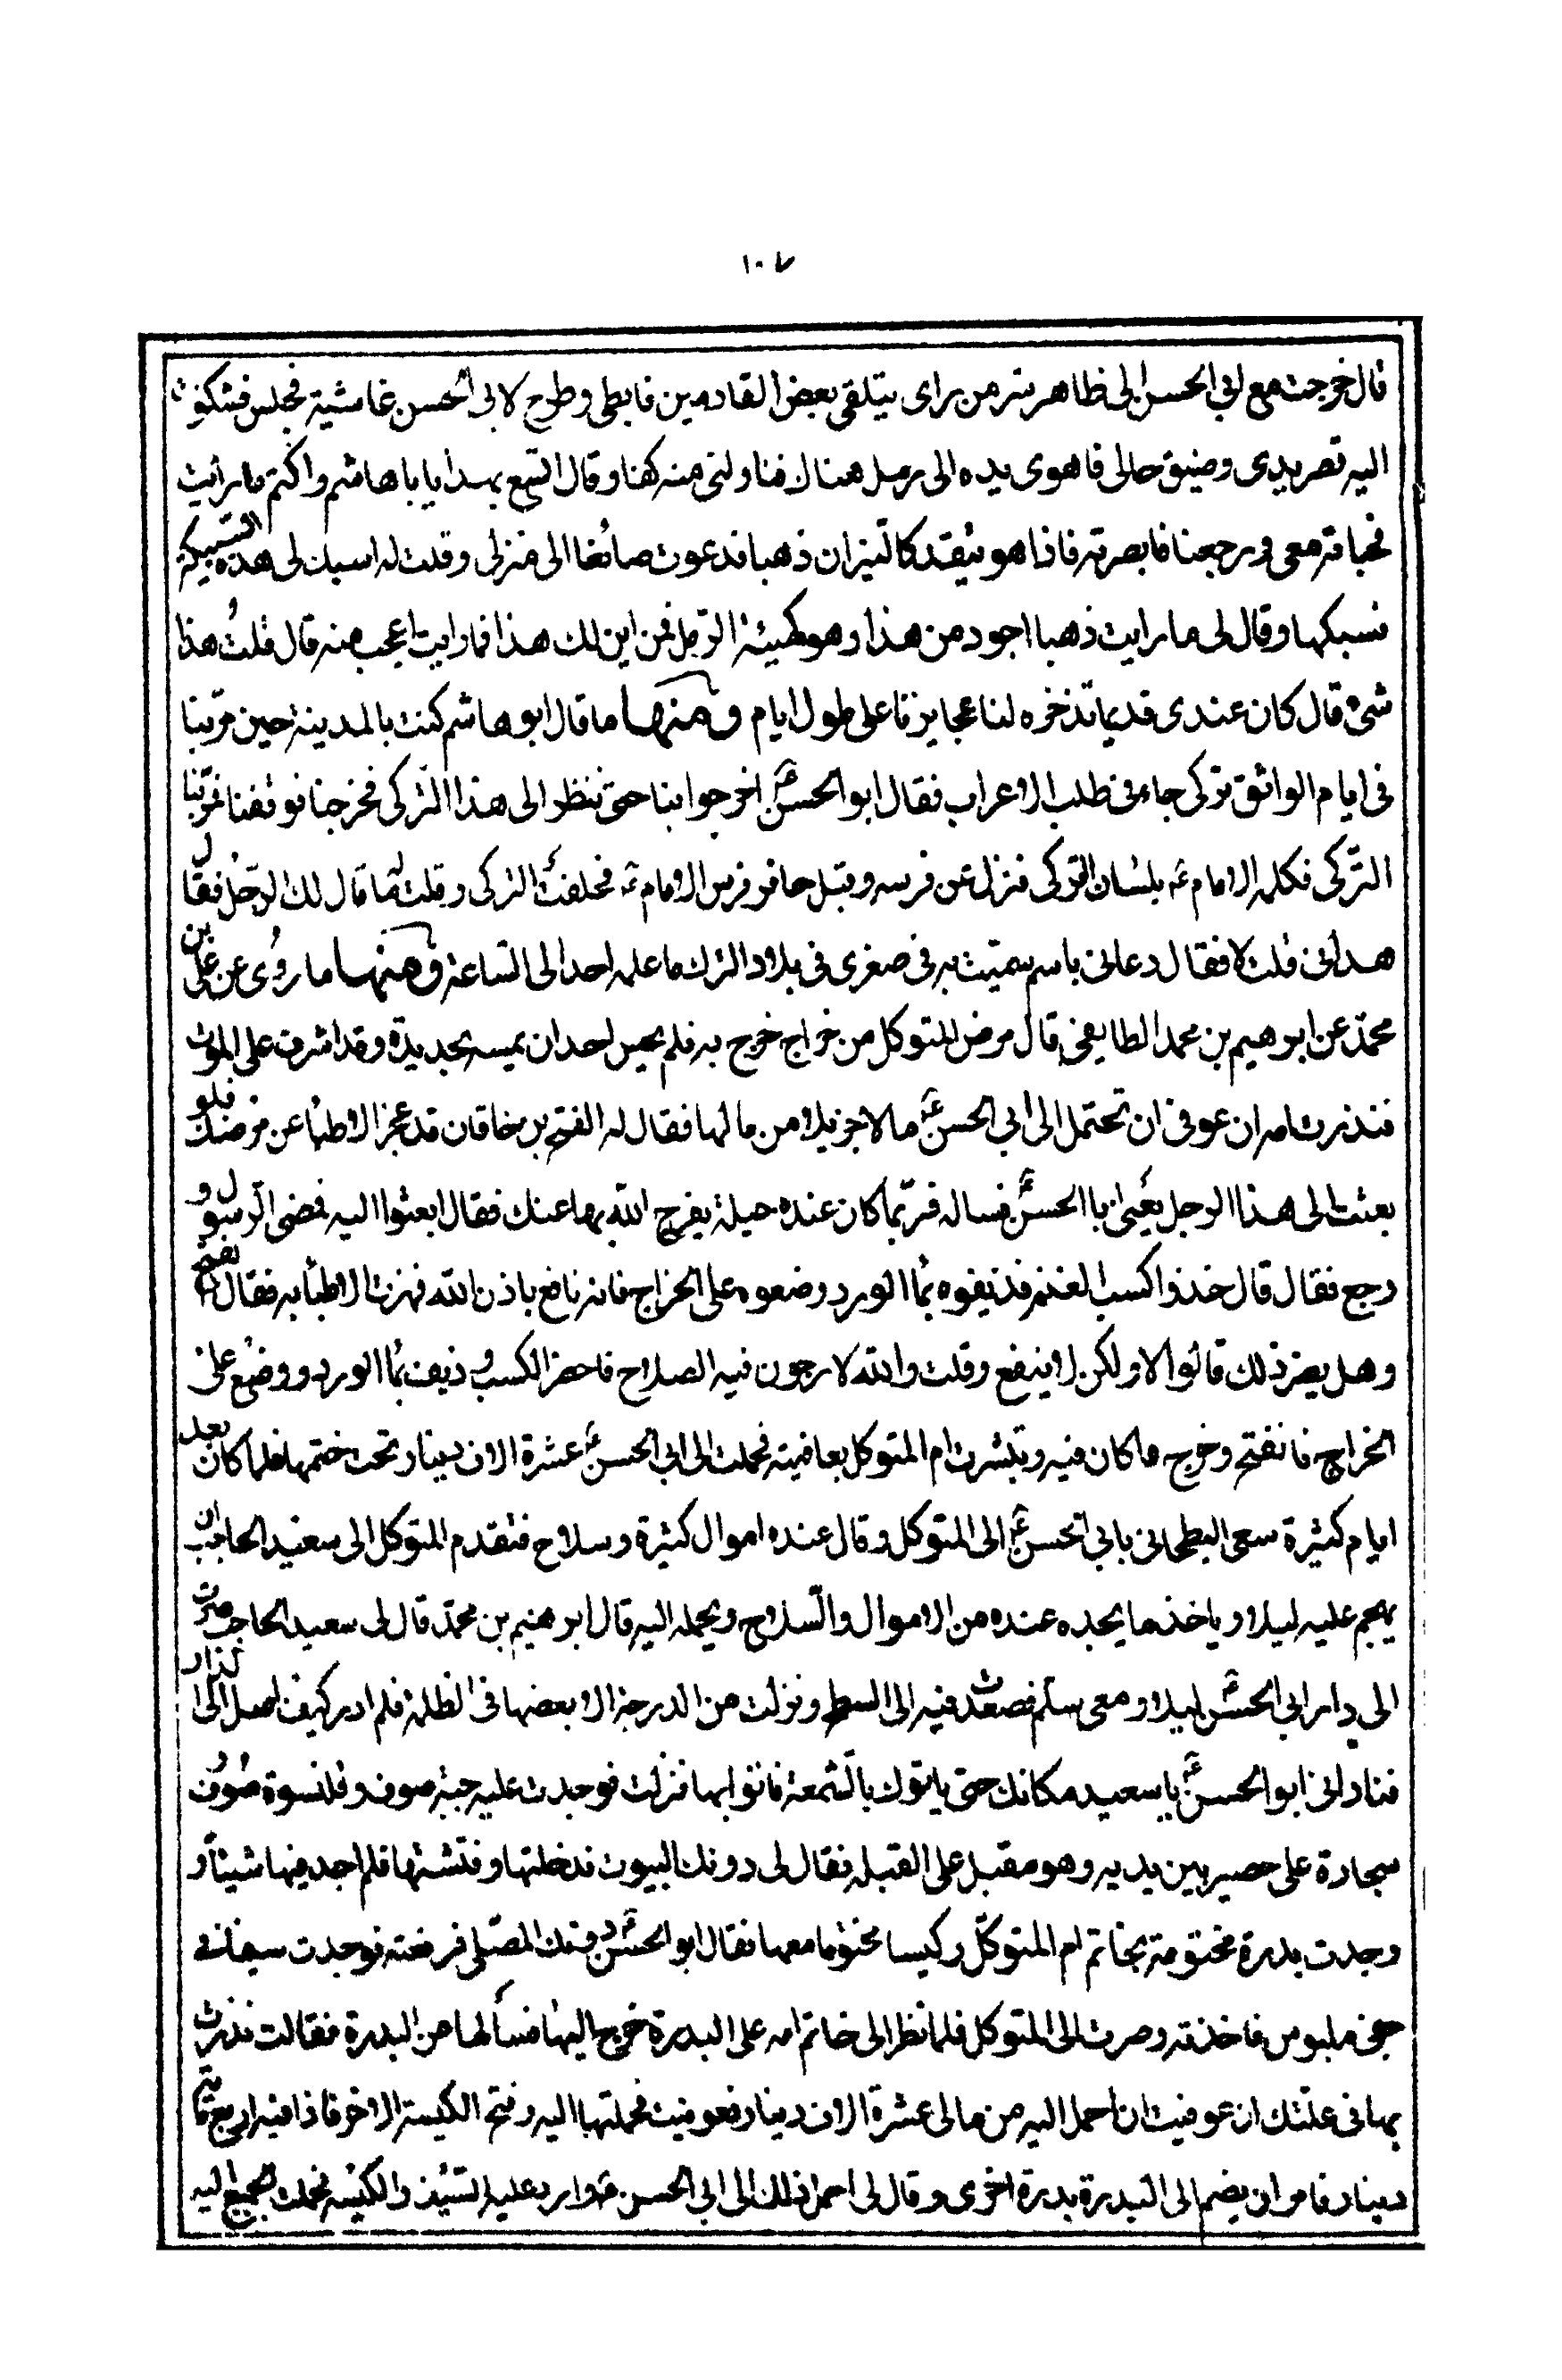 ١٠٧
قال خرجت مع ابي الحسن الى ظاهر سر من راى يتلقى بعض القادمين فابطى وطرح لابى الحسن غاشية فجلس فشكوت
اليه قصر يدى وضيق حالى فاهوى يده الى رمل هناك فناولنى منه كفا وقال اتسع بهذا يا باهاشم واكتم ما رايت
فخباته معى ورجعنا فابصرته فاذا هو يتقد كالنيران ذهبا فدعوت صائغا الى منزلى وقلت له اسبك لى هذه السبيكة
فسبكها وقال لى ما رايت ذهبا اجود من هذا وهو كهيئة الرمل فمن اين لك هذا فما رايت اعجب منه قال قلت هذا
شئ قال كان عندى قديما تذخره لنا عجايزنا على طول ايام ومنها ما قال ابو هاشم كنت بالمدينة حين مرّ بنا
فى ايام الواثق تركى جاء فى طلب الاعراب فقال ابو الحسن ع اخرجوا بنا حتى ننظر الى هذا التركى فخرجنا فوقفنا فمرّ بنا
التركى فكلمه الامام ع بلسان التركى فنزل عن فرسه وقبل حافر فرس الامام ع فحلفت التركى وقلت له ما قال لك الرجل فقال
هذا نبى قلت لا فقال دعانى باسم سميت به فى صغرى فى بلاد الترك ما علمه احد الى الساعة ومنها ما روى عن على بن
محمد عن ابرهيم بن محمد الطايفى قال مرض المتوكل من خراج خرج به فلم يجسر احد ان يمسه بحديدة وقد اشرف على الموت
فنذرت امه ان عوفى ان تحتمل الى ابي الحسن ع مالا جزيلا من مالها فقال له الفتح بن خاقان قد عجز الاطباء عن مرضك فلو
بعثت الى هذا الرجل يعنى ابا الحسن ع فساله فربما كان عنده حيلة يفرج الله بها عنك فقال ابعثوا اليه فمضى الرسول و
رجع فقال قال خذوا كسب الغنم فذيفوه بماء الورد وضعوه على الخراج فانه نافع باذن الله فهزت الاطباء به فقال الفتح
وهل يضر ذلك قالوا لا ولكن لا ينفع وقلت والله لارجون فيه الصلاح فاحضر الكسب وذيف بماء الورد ووضع على
الخراج فانفتح وخرج ما كان فيه وتبشرت ام المتوكل بعافيته فحملت الى ابي الحسن ع عشرة الاف دينار تحت ختمها فلما كان بعد
ايام كثيرة سعى البطحانى بابي الحسن ع الى المتوكل وقال عنده اموال كثيرة وسلاح فتقدم المتوكل الى سعيد الحاجب ان
يهجم عليه ليلا وياخذ ما يجده عنده من الاموال والسلاح ويحمله اليه قال ابرهيم بن محمد قال لى سعيد الحاجب صرت
الى دار ابي الحسن ع ليلا ومعى سلم فصعدت فيه الى السطح ونزلت من الدرجة الا بعضها فى الظلمة فلم ادر كيف اصل الى الدار
فنادانى ابو الحسن ع يا سعيد مكانك حتى ياتوك بالشمعة فاتوا بها فنزلت فوجدت عليه جبة صوف وقلنسوة صوف
سجادة على حصير بين يديه وهو مقبل على القبلة فقال لى دونك البيوت فدخلتها وفتشتها فلم اجد فيها شيئا و
وجدت بدرة مختومة بخاتم ام المتوكل وكيسا مختوما معها فقال ابو الحسن ع دونك المصلى فرفعته فوجدت سيفا فى
جفن ملبوس فاخذته وصرت الى المتوكل فلما نظر الى خاتم امه على البدرة خرج اليها فسألها من البدرة فقالت نذرت
بها فى علتك ان عوفيت ان احمل اليه من مالى عشرة الاف دينار فعوفيت فحملتها اليه وفتح الكيسة الاخر فاذا فيه اربع مائة
دينار فامر ان يضم الى البدرة بدرة اخرى وقال لى احمل ذلك الى ابي الحسن ع وارد عليه السيف والكيسه فحملت الجميع اليه